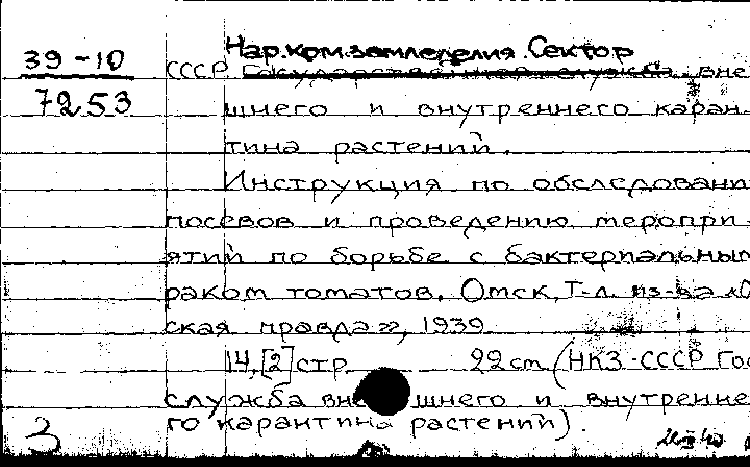 Нар.ком.земледелия. Сектор
39-10
СССР Государственная служба вне
7253
шнего и внутреннего каран-
тина растений.
Инструкция по обследовани
посевов и проведению меропри
ятий по борьбе с бактериальным
раком томатов. Омск, Т-л. из-ва "О
ская правда", 1939
14,[2] стр. 22 cm (НКЗ-СССР Гос
служба вне шнего и внутренне
го карантина растений).
3